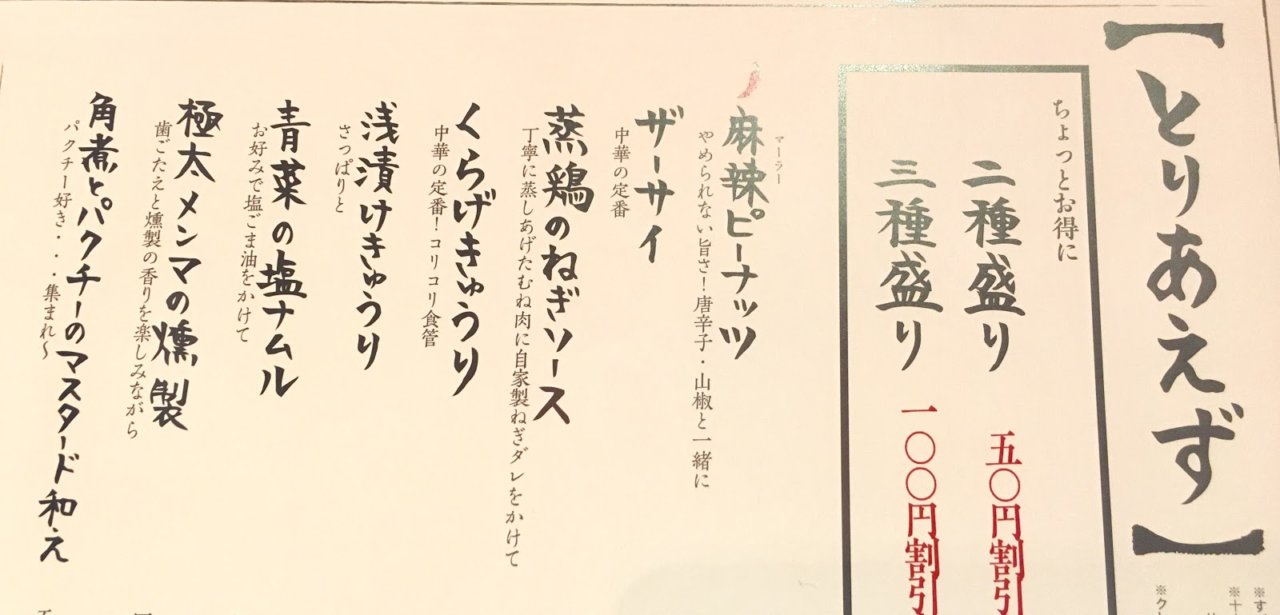 【とりあえず】
ちょっとお得に
二種盛り 五〇円割引
三種盛り 一〇〇円割引
マーラー
麻辣ピーナッツ
やめられない旨さ！唐辛子・山椒と一緒に
ザーサイ
中華の定番
蒸鶏のねぎソース
丁寧に蒸しあげたむね肉に自家製ねぎダレをかけて
くらげきゅうり
中華の定番！コリコリ食管
浅漬けきゅうり
さっぱりと
青菜の塩ナムル
お好みで塩ごま油をかけて
極太メンマの燻製
歯ごたえと燻製の香りを楽しみながら
角煮とパクチーのマスタード和え
パクチー好き・・・集まれ～